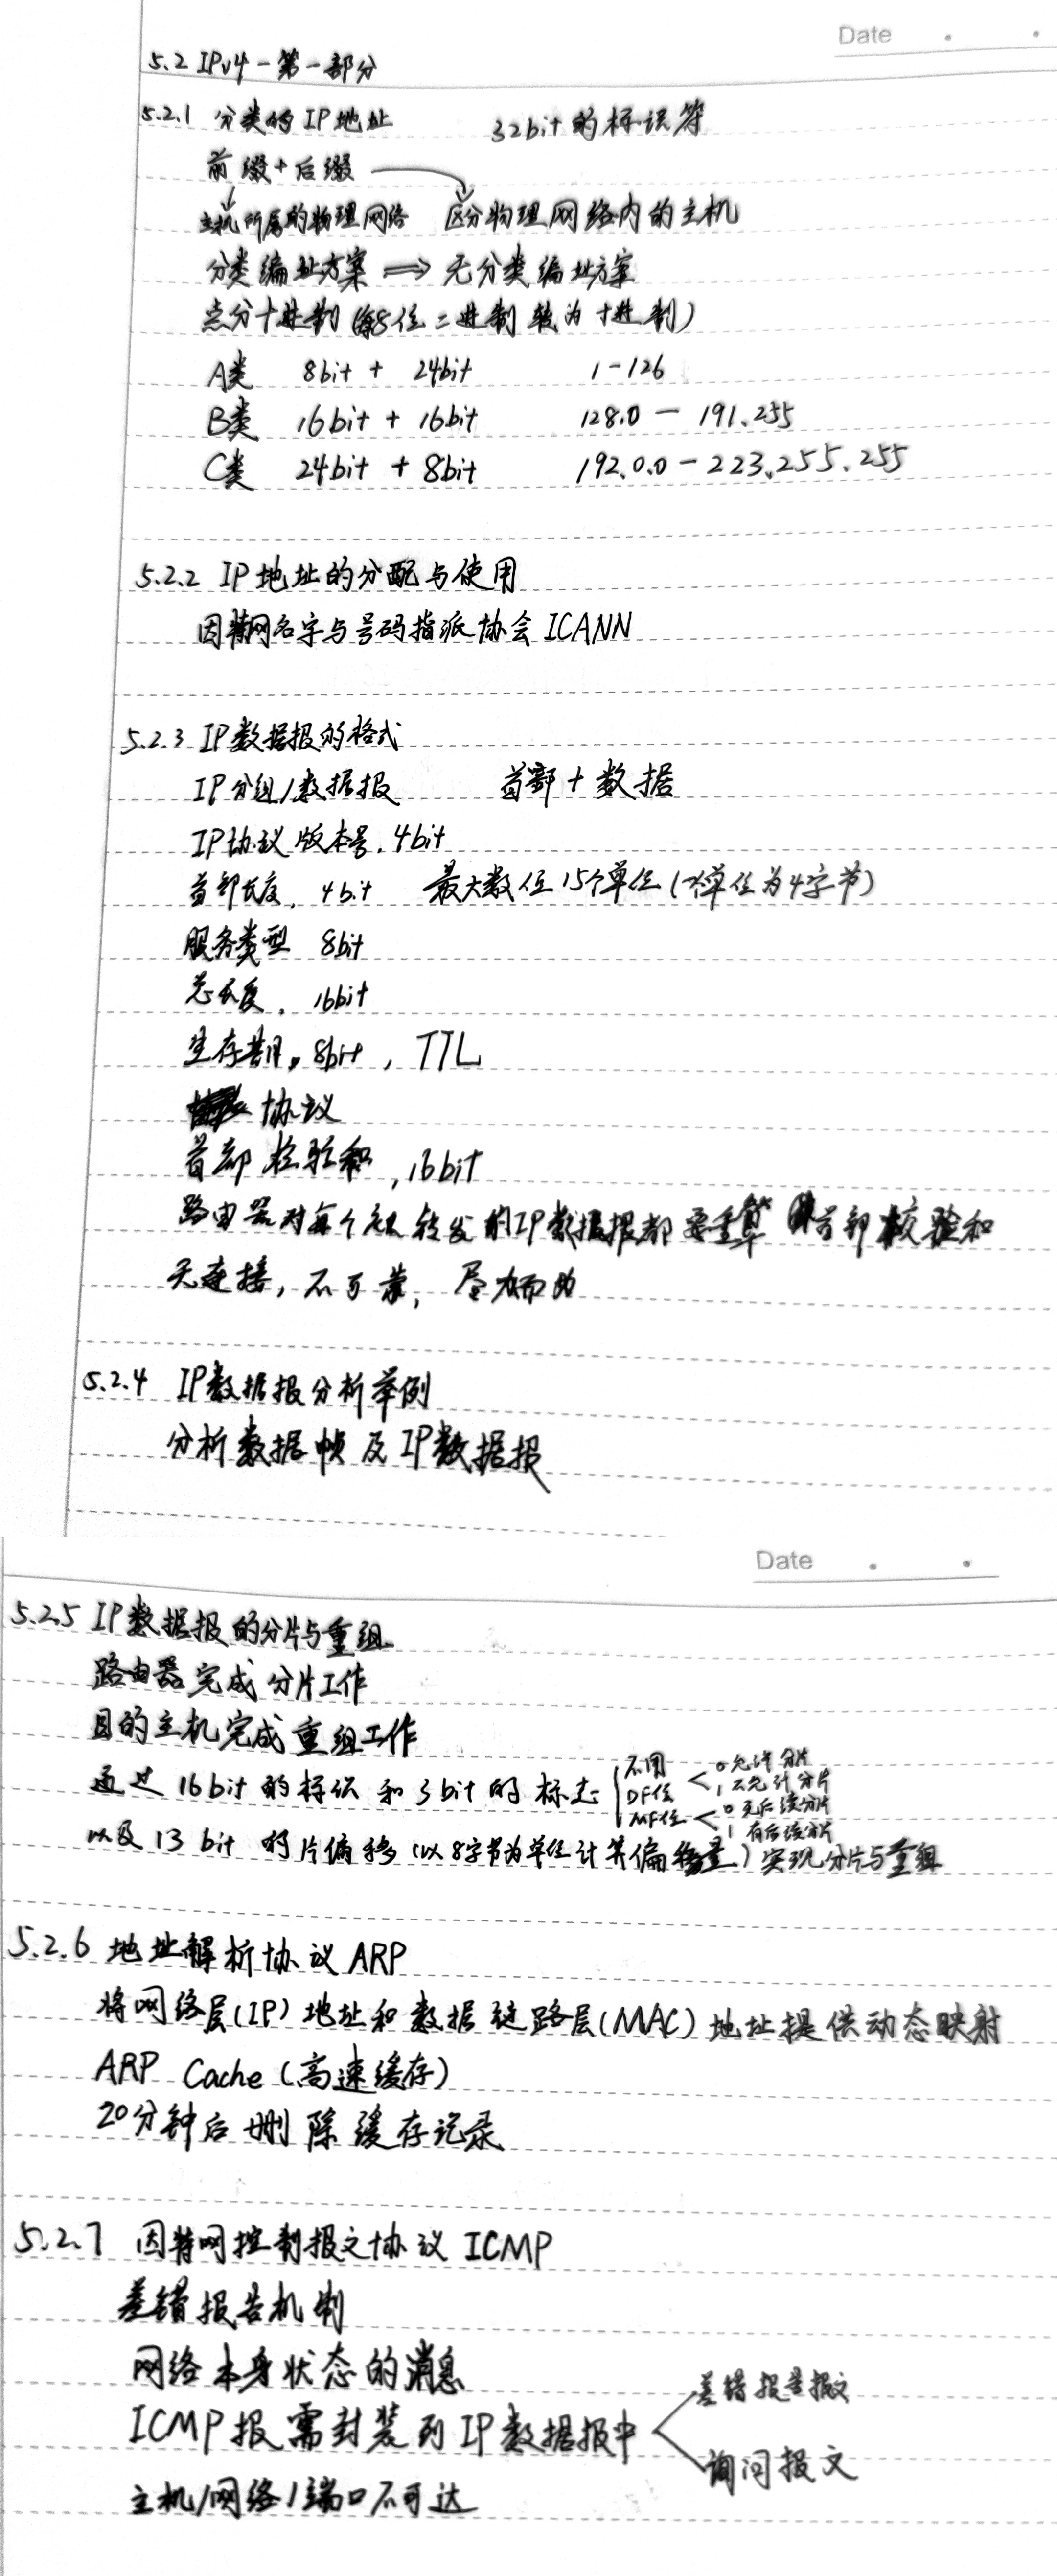 Date
5.2 IPv4-第一部分
5.2.1 分类的IP地址 32bit的标识符
前缀+后缀
主机所属的物理网络 区分物理网络内的主机
分类编址方案 ⇒ 无分类编址方案
点分十进制(每8位二进制转为十进制)
A类 8bit + 24bit 1-126
B类 16bit + 16bit 128.0 - 191.255
C类 24bit + 8bit 192.0.0-223.255.255
5.2.2 IP地址的分配与使用
因特网名字与号码指派协会ICANN
5.2.3 IP数据报的格式
IP分组/数据报 首部+数据
IP协议版本号. 4bit
首部长度. 4bit 最大数值15个单位(1个单位为4字节)
服务类型 8bit
总长度. 16bit
生存期. 8bit, TTL
协议
首部检验和, 16bit
路由器对每个转发的IP数据报都要重算首部校验和
无连接, 不可靠, 尽力而为
5.2.4 IP数据报分析举例
分析数据帧及IP数据报
Date
5.2.5 IP数据报的分片与重组
路由器完成分片工作
目的主机完成重组工作
通过16bit的标识和3bit的标志
不用
DF位 0 允许分片
1 不允许分片
MF位 0 无后续分片
1 有后续分片
以及13bit的片偏移(以8字节为单位计算偏移量)实现分片与重组
5.2.6 地址解析协议ARP
将网络层(IP)地址和数据链路层(MAC)地址提供动态映射
ARP Cache(高速缓存)
20分钟后删除缓存记录
5.2.7 因特网控制报文协议 ICMP
差错报告机制
网络本身状态的消息
ICMP报需封装到IP数据报中
差错报告报文
询问报文
主机/网络/端口不可达